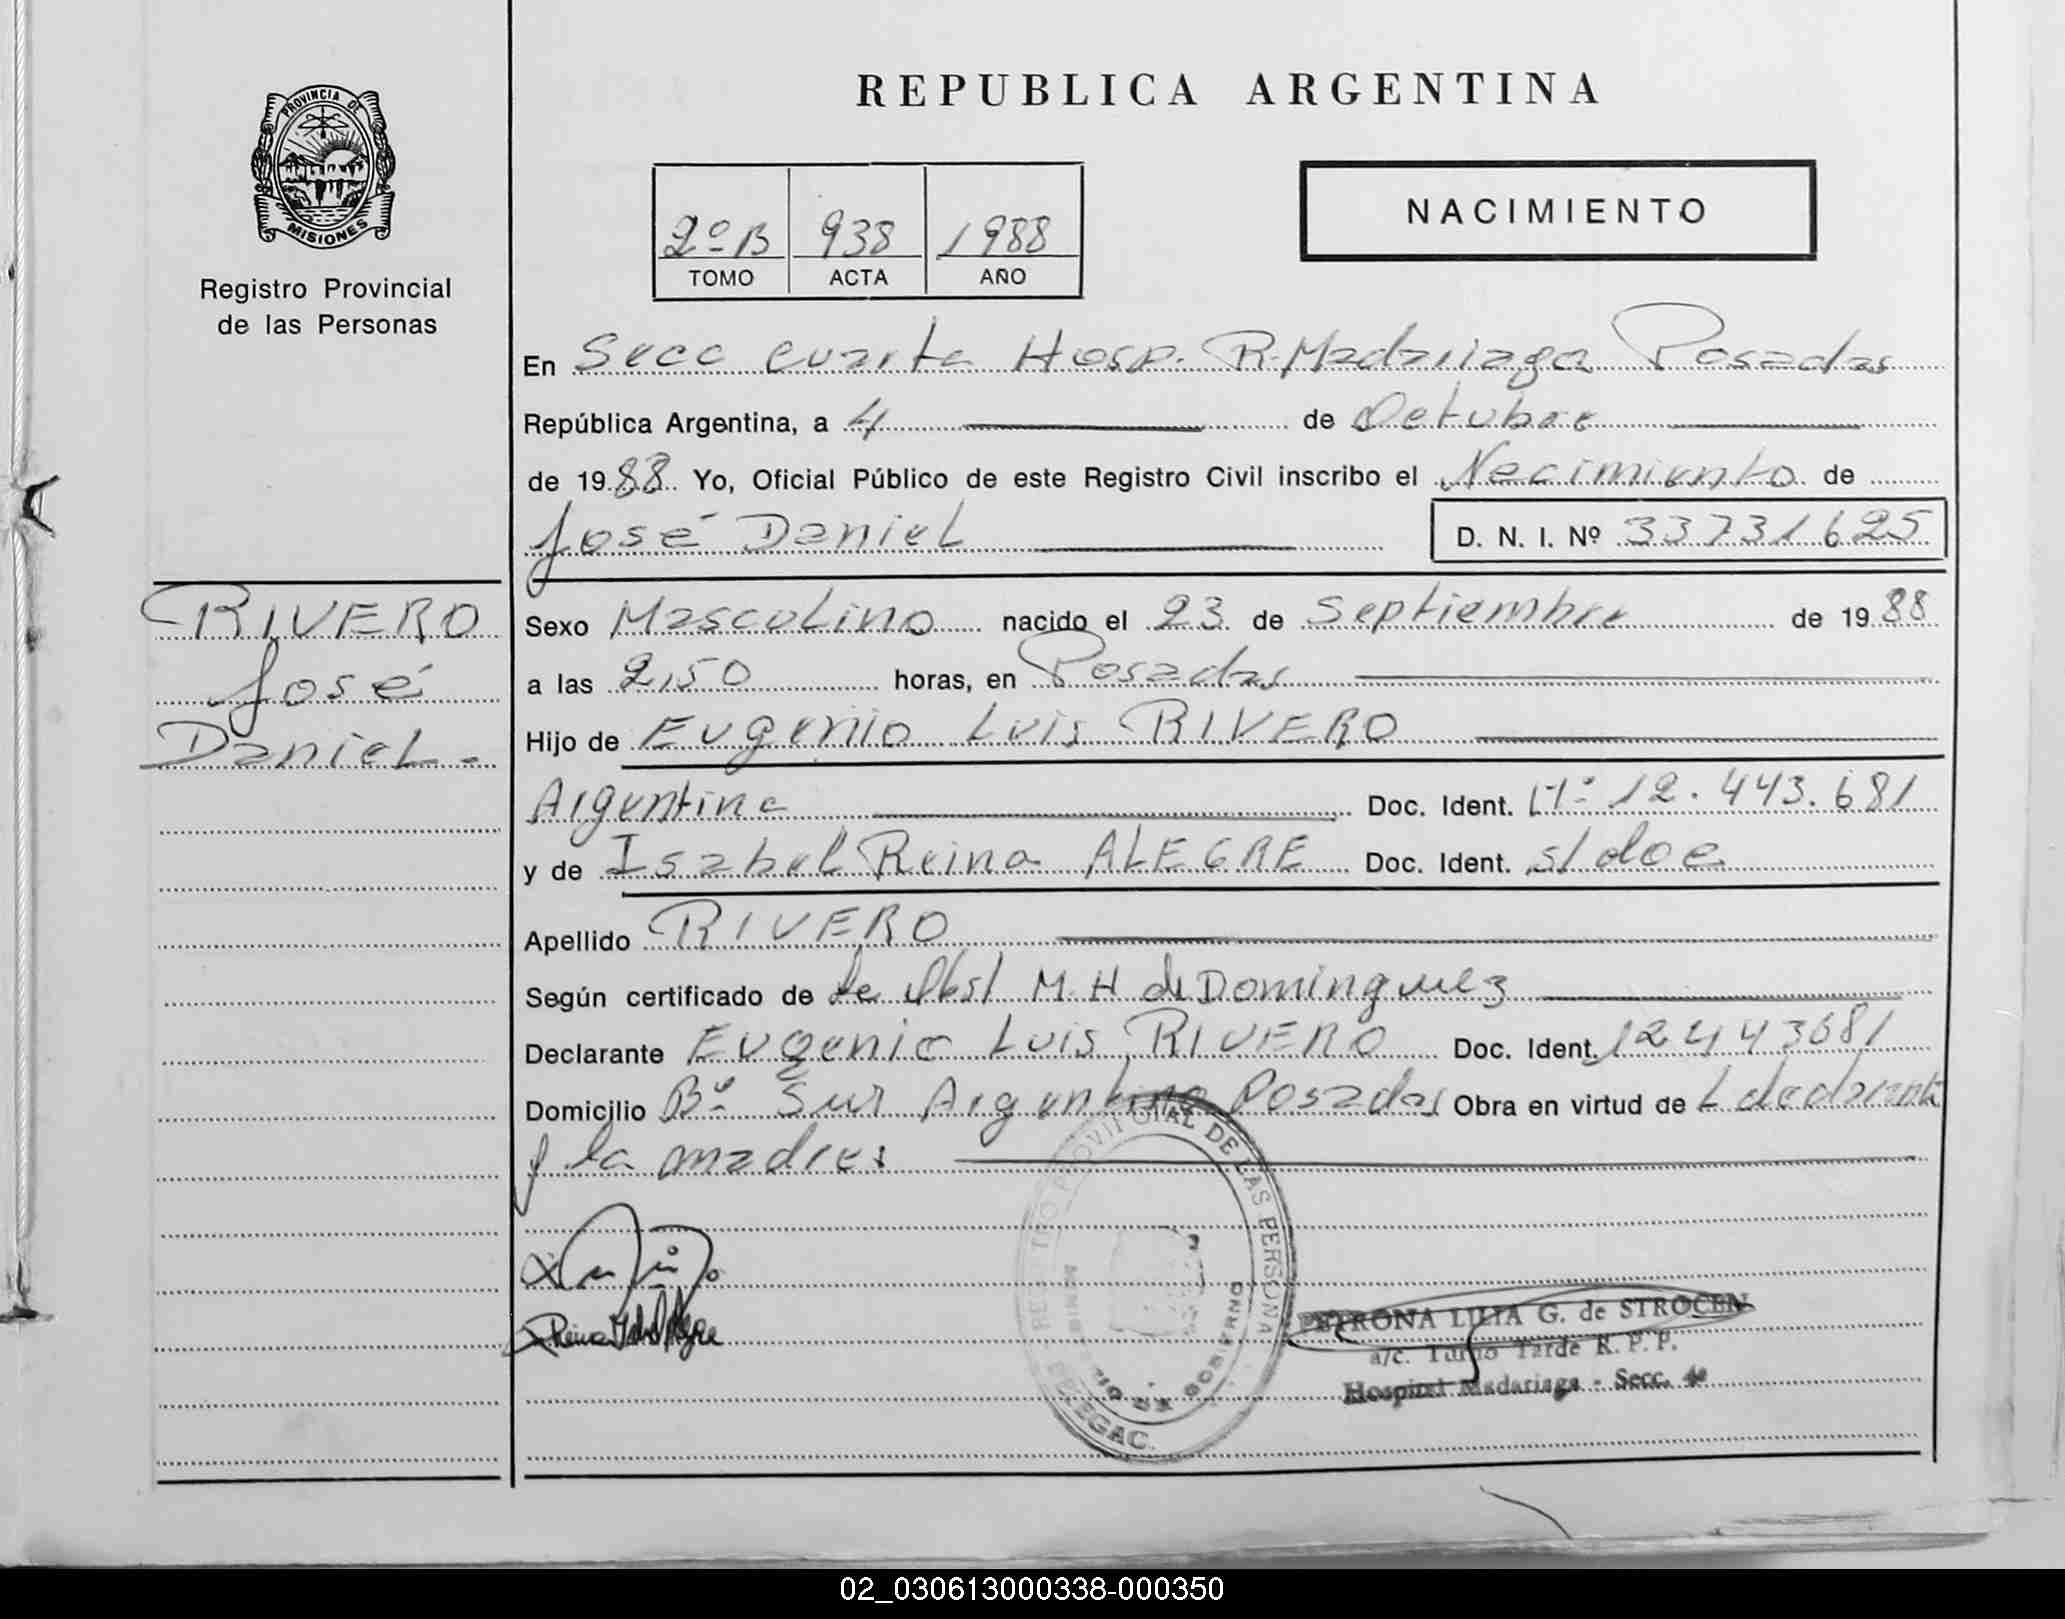 PROVINCIA DE
MISIONES
Registro Provincial
de las Personas
REPUBLICA ARGENTINA
2º B 938 1988
TOMO ACTA AÑO
NACIMIENTO
En Secc cuarta Hosp. R. Madariaga Posadas
República Argentina, a 4 de Octubre
de 1988 Yo, Oficial Público de este Registro Civil inscribo el Nacimiento de
José Daniel D. N. I. Nº 33731625
RIVERO
José
Daniel.
Sexo Masculino nacido el 23 de Septiembre de 1988
a las 2,50 horas, en Posadas
Hijo de Eugenio Luis RIVERO
Argentina Doc. Ident. Mº 12.443.681
y de Isabel Reina ALEGRE Doc. Ident. s/doc
Apellido RIVERO
Según certificado de la Obst M. H de Dominguez
Declarante Eugenio Luis RIVERO Doc. Ident. 12443681
Domicilio Bº Sur Argentino Posadas Obra en virtud de L declarante
y la madre
REGISTRO PROVINCIAL DE LAS PERSONAS
MINISTERIO DE GOBIERNO
DELEGAC.
Reina Isabel Alegre
PETRONA LILIA G. de STROCEN
a/c. Turno Tarde R. P. P.
Hospital Madariaga - Secc. 4a
02_030613000338-000350